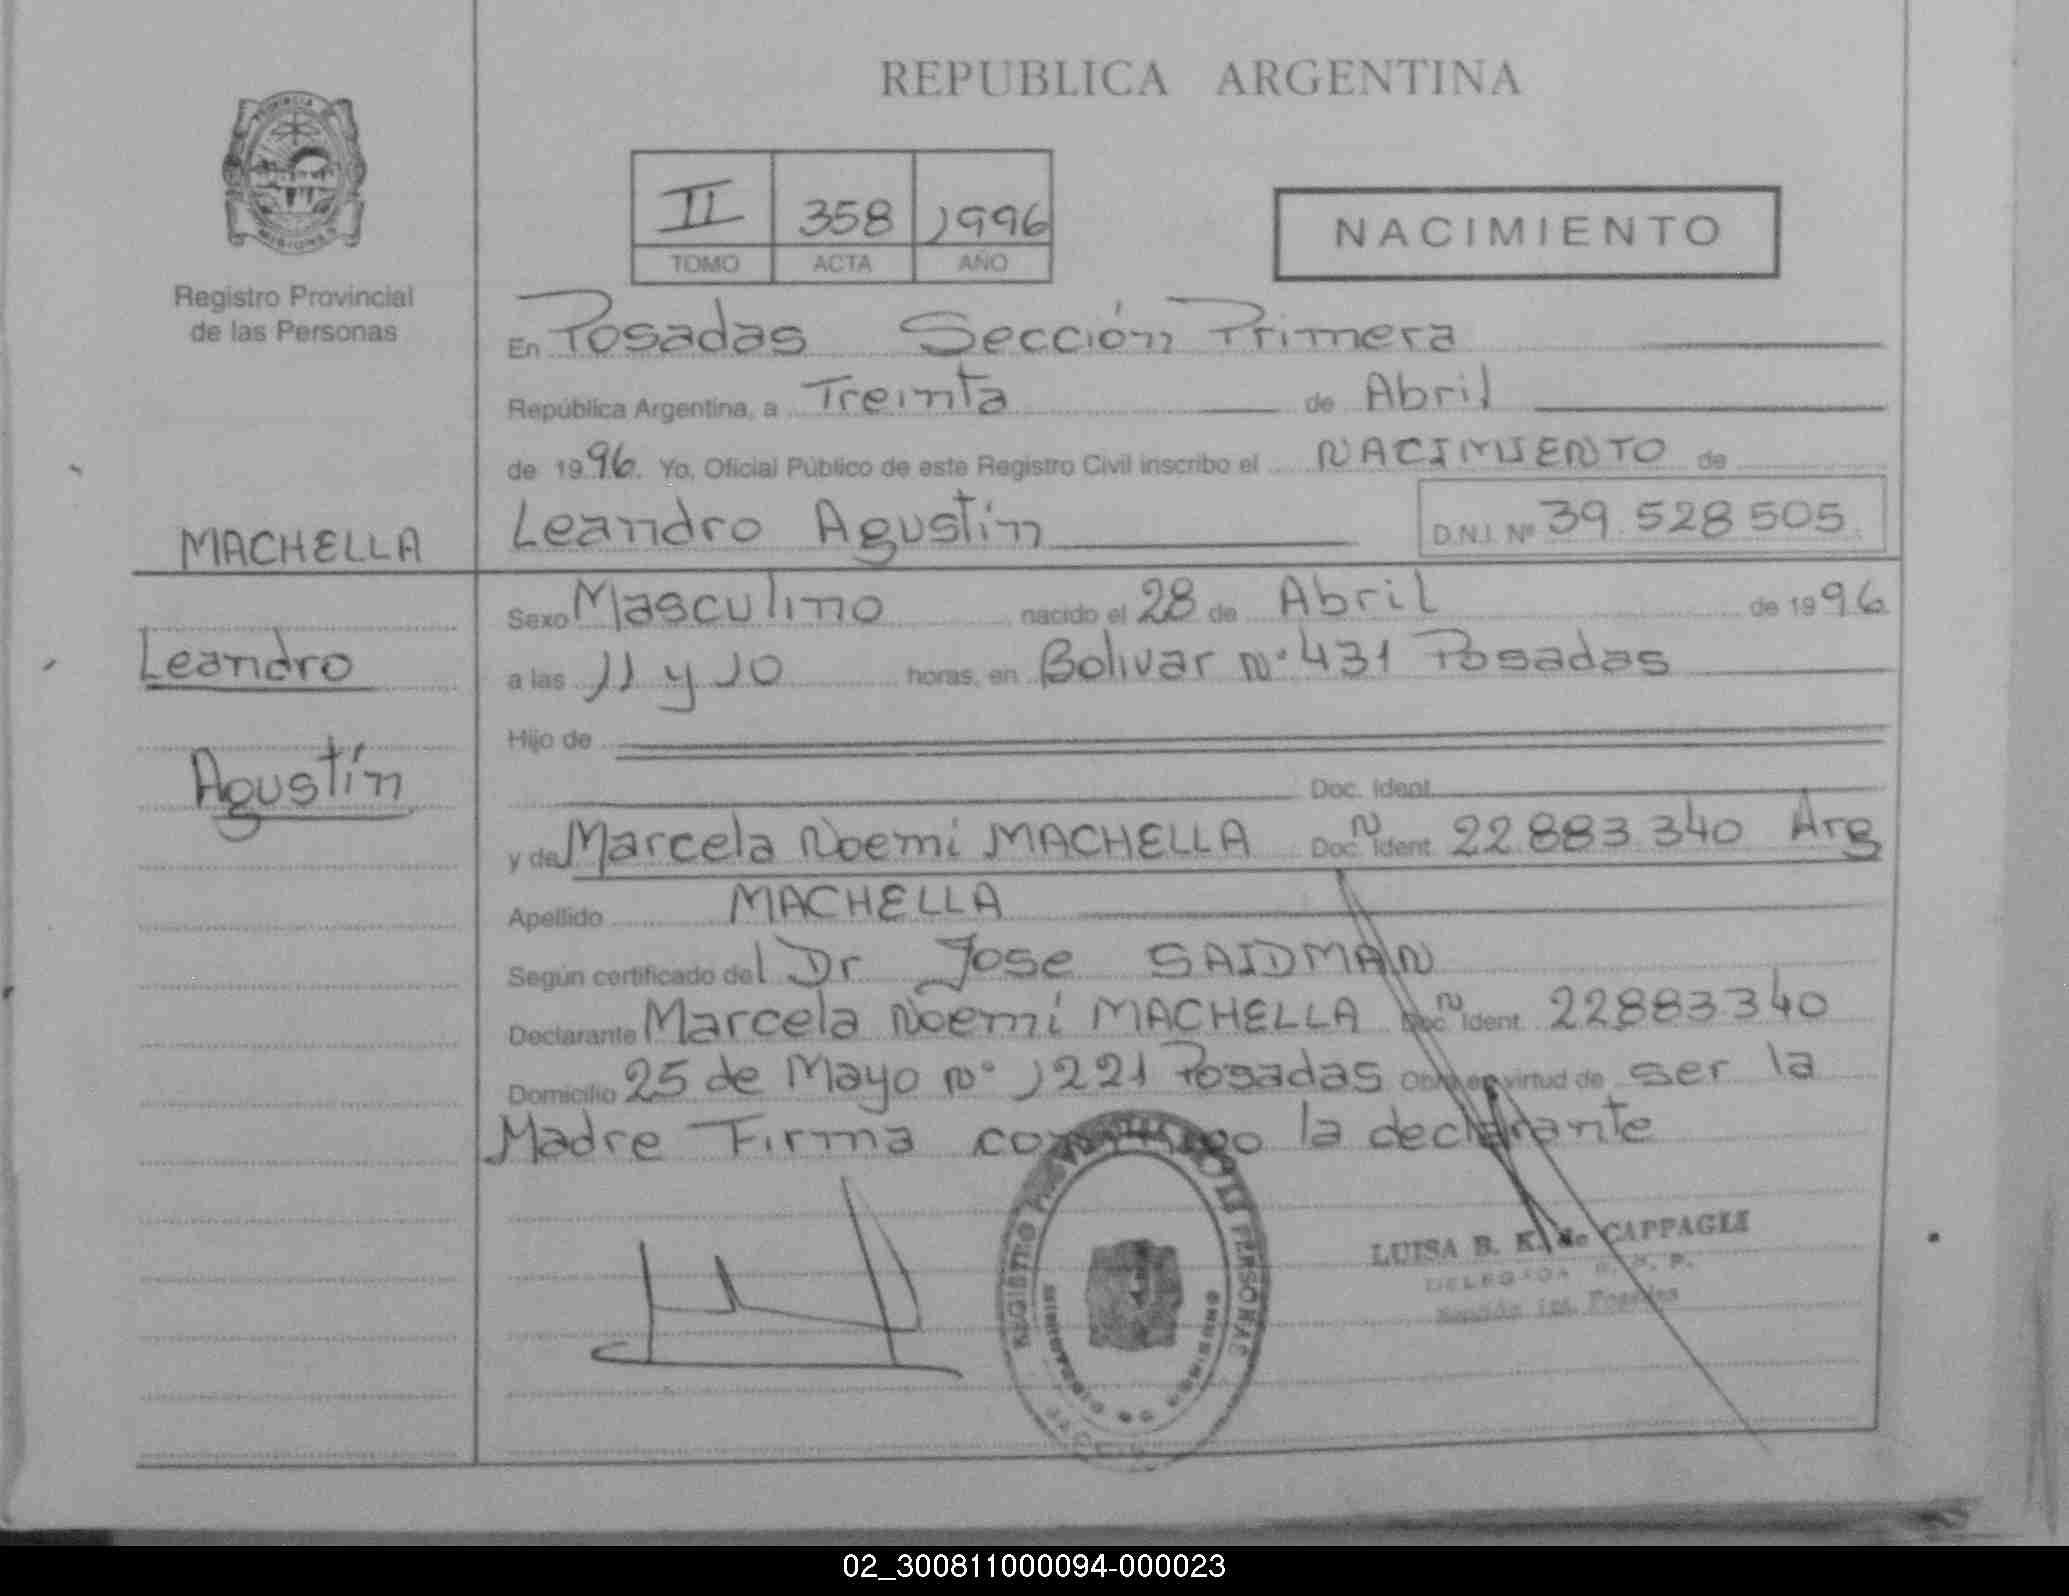 REPUBLICA ARGENTINA
PROVINCIA
MISIONES
Registro Provincial
de las Personas
II 358 1996
TOMO ACTA AÑO
NACIMIENTO
En Posadas Sección Primera
República Argentina, a Treinta de Abril
de 1996. Yo, Oficial Público de este Registro Civil inscribo el NACIMIENTO de
MACHELLA
Leandro Agustín D.N.I. Nº 39.528.505.
Sexo Masculino nacido el 28 de Abril de 1996
Leandro
a las 11 y 10 horas, en Bolivar Nº 431 Posadas
Hijo de
Agustín
Doc. Ident.
y de Marcela Noemí MACHELLA Doc. N Ident. 22.883.340 Arg
Apellido MACHELLA
Según certificado del Dr Jose SAIDMAN
Declarante Marcela Noemí MACHELLA Doc. N Ident. 22883340
Domicilio 25 de Mayo Nº 1221 Posadas Obra en virtud de ser la
Madre Firma conmigo la declarante
REGISTRO DE LAS PERSONAS
LUISA B. K. de CAPPAGLI
DELEGADA R. P. P.
Sección 1ra. Posadas
02_300811000094-000023